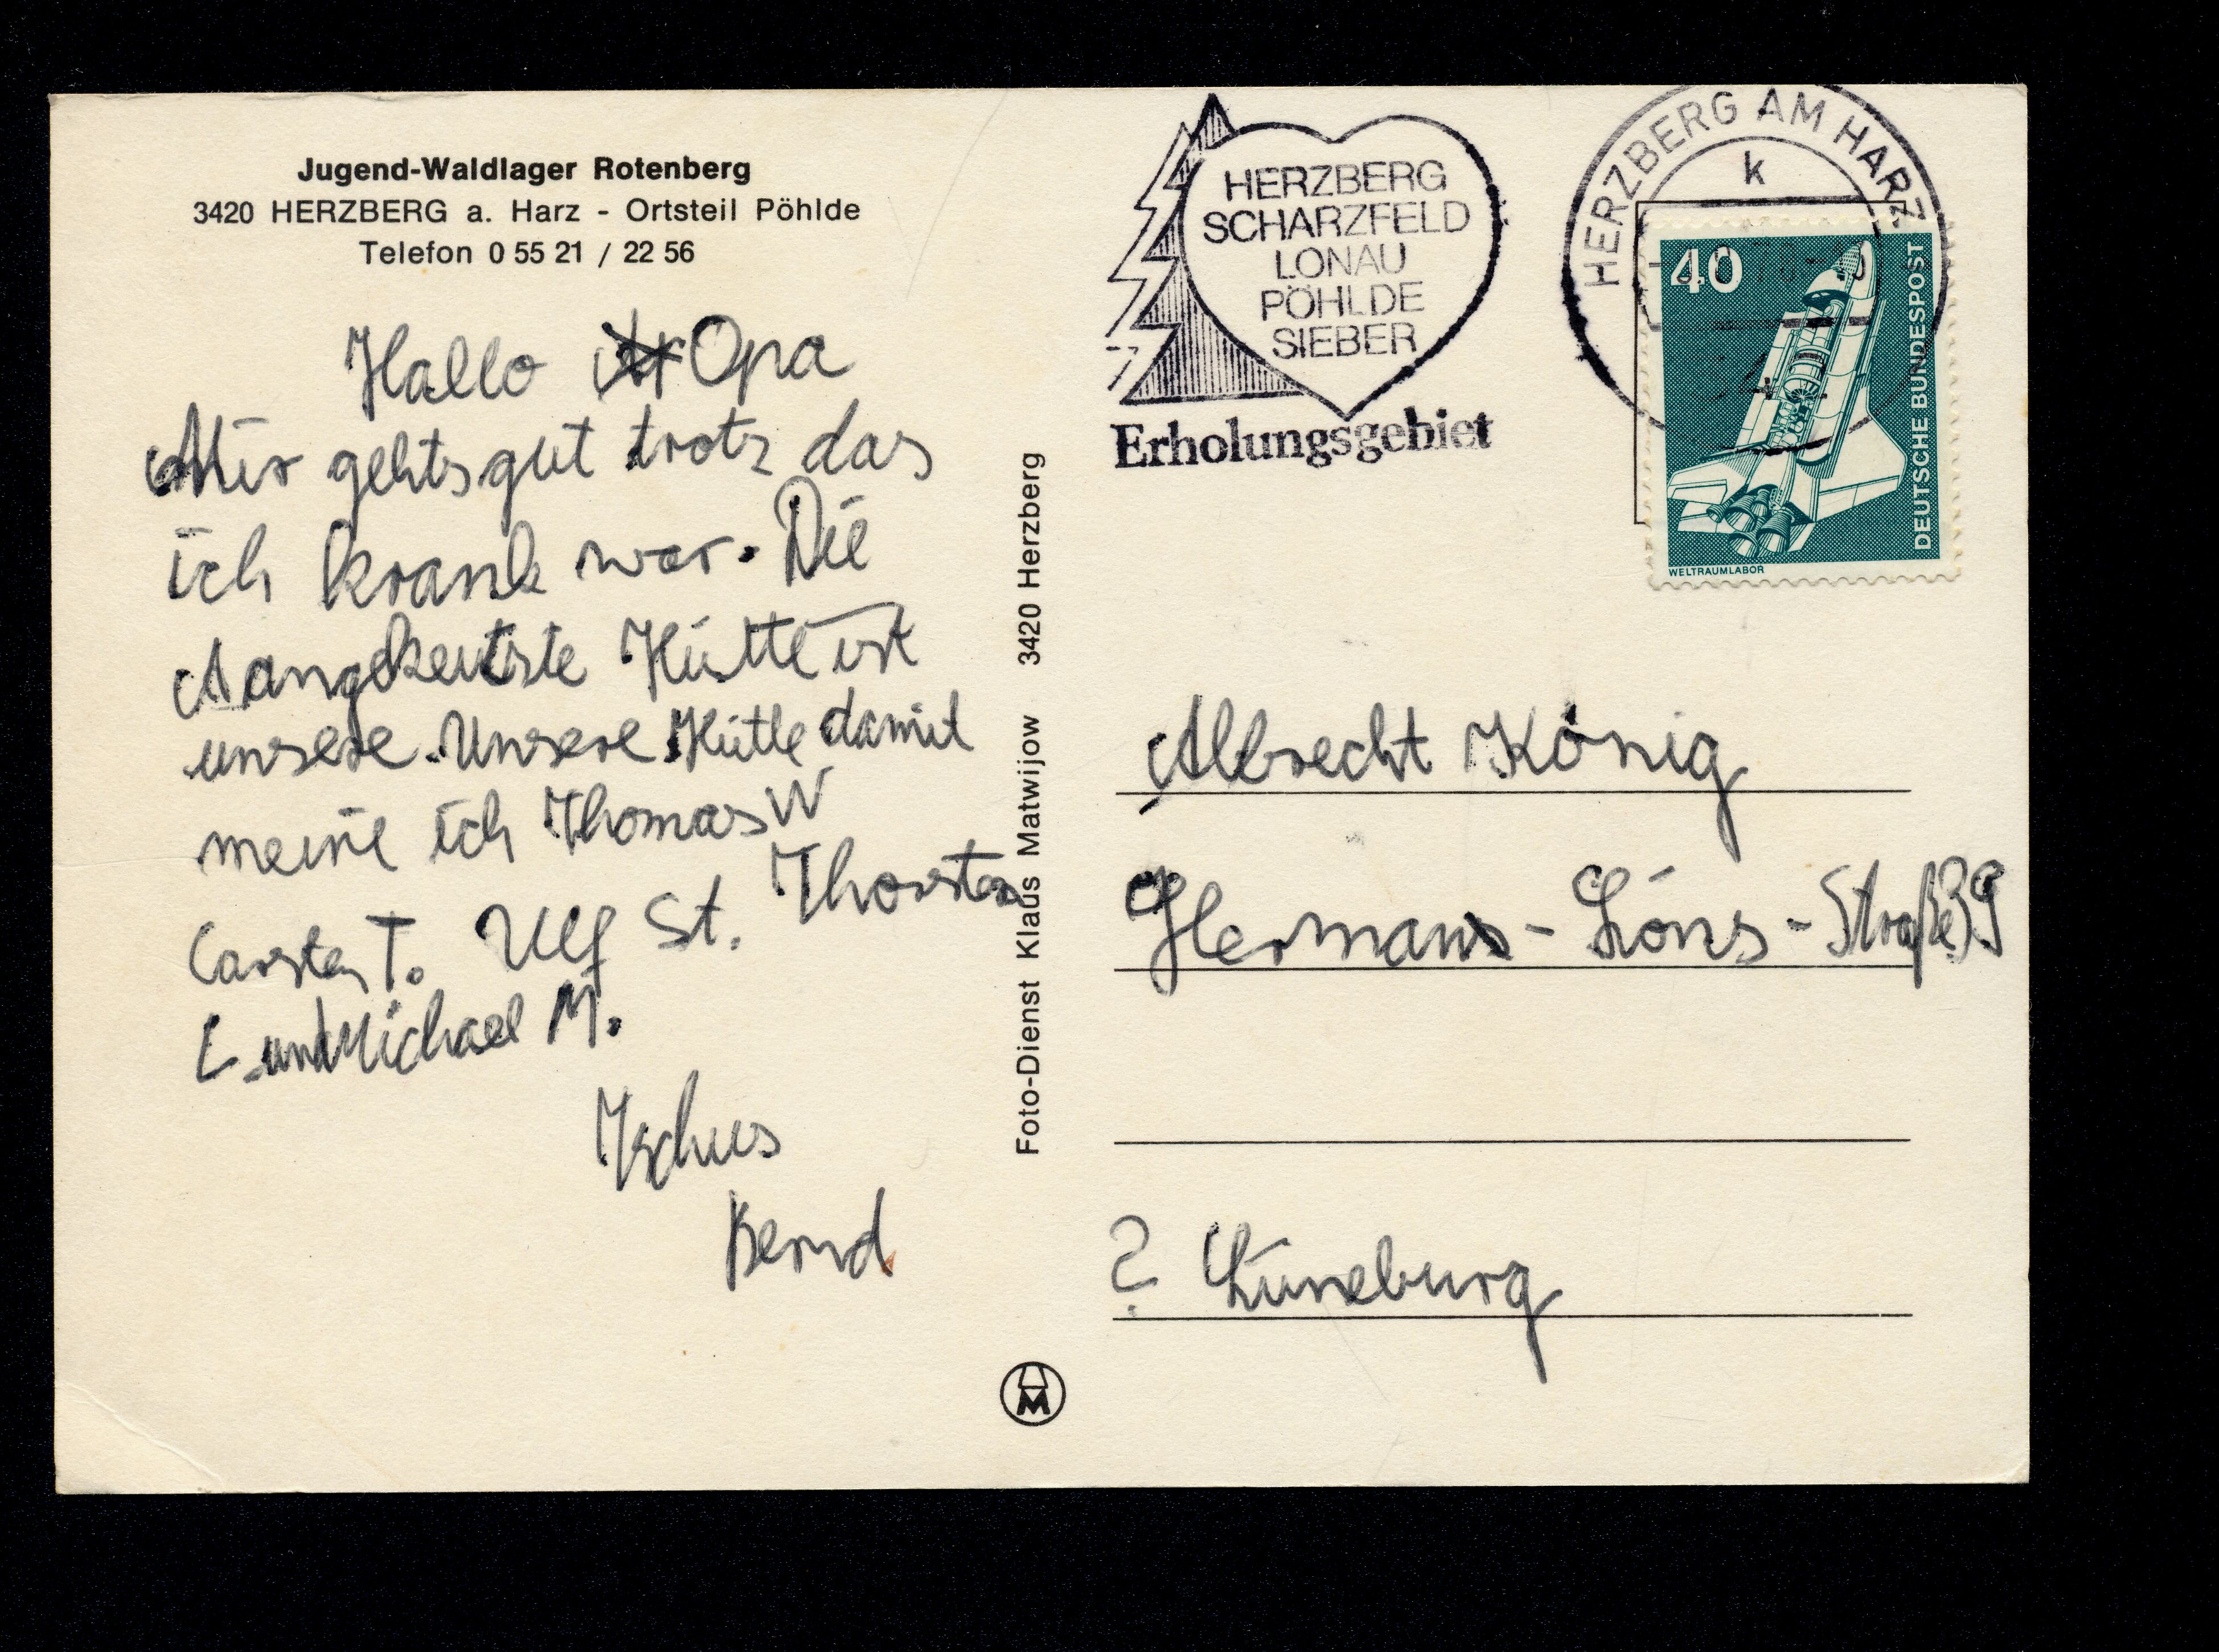 Jugend-Waldlager Rotenberg
3420 HERZBERG a. Harz - Ortsteil Pöhlde
Telefon 0 55 21 / 22 56
Hallo Opa
Mir gehts gut trotz das
ich krank war. Die
Aangekeutste Hütte ist
unsere. Unsere Hütte damit
meine ich Thomas W
Carsten T. Ulf St. Thorsten
L und Michael M.
Tschus
Bernd
Foto-Dienst Klaus Matwijow 3420 Herzberg
HERZBERG
SCHARZFELD
LONAU
PÖHLDE
SIEBER
Erholungsgebiet
HERZBERG AM HARZ
k
40
DEUTSCHE BUNDESPOST
WELTRAUMLABOR
Albrecht König
Hermann-Löns-Straße 39
? Lüneburg